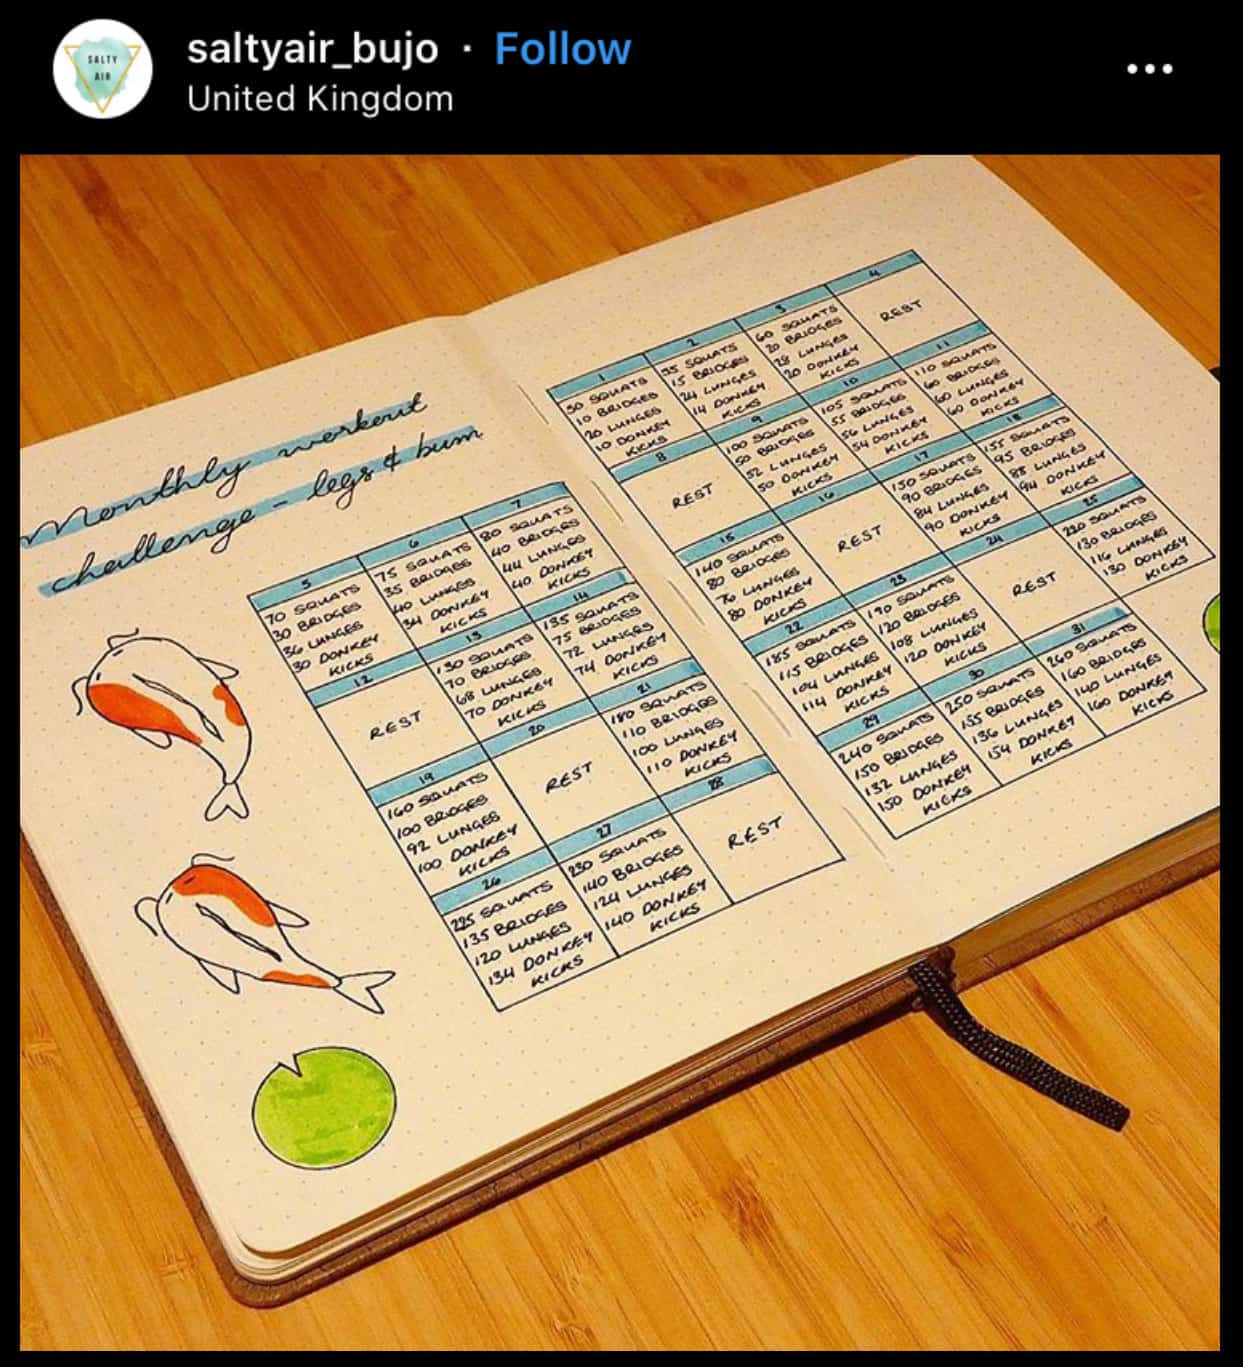 SALTY
AIR
saltyair_bujo · Follow
United Kingdom
...
Monthly workout
challenge - legs & bum
5
70 SQUATS
30 BRIDGES
36 LUNGES
30 DONKEY
KICKS
6
75 SQUATS
35 BRIDGES
40 LUNGES
34 DONKEY
KICKS
7
80 SQUATS
40 BRIDGES
44 LUNGES
40 DONKEY
KICKS
12
REST
13
130 SQUATS
70 BRIDGES
68 LUNGES
70 DONKEY
KICKS
14
135 SQUATS
75 BRIDGES
72 LUNGES
74 DONKEY
KICKS
19
160 SQUATS
100 BRIDGES
92 LUNGES
100 DONKEY
KICKS
20
REST
21
180 SQUATS
110 BRIDGES
100 LUNGES
110 DONKEY
KICKS
26
225 SQUATS
135 BRIDGES
120 LUNGES
134 DONKEY
KICKS
27
230 SQUATS
140 BRIDGES
124 LUNGES
140 DONKEY
KICKS
28
REST
1
50 SQUATS
10 BRIDGES
20 LUNGES
10 DONKEY
KICKS
2
55 SQUATS
15 BRIDGES
24 LUNGES
14 DONKEY
KICKS
3
60 SQUATS
20 BRIDGES
28 LUNGES
20 DONKEY
KICKS
4
REST
8
REST
9
100 SQUATS
50 BRIDGES
52 LUNGES
50 DONKEY
KICKS
10
105 SQUATS
55 BRIDGES
56 LUNGES
54 DONKEY
KICKS
11
110 SQUATS
60 BRIDGES
60 LUNGES
60 DONKEY
KICKS
15
140 SQUATS
80 BRIDGES
76 LUNGES
80 DONKEY
KICKS
16
REST
17
150 SQUATS
90 BRIDGES
84 LUNGES
90 DONKEY
KICKS
18
155 SQUATS
95 BRIDGES
88 LUNGES
94 DONKEY
KICKS
22
185 SQUATS
115 BRIDGES
104 LUNGES
114 DONKEY
KICKS
23
190 SQUATS
120 BRIDGES
108 LUNGES
120 DONKEY
KICKS
24
REST
25
220 SQUATS
130 BRIDGES
116 LUNGES
130 DONKEY
KICKS
29
240 SQUATS
150 BRIDGES
132 LUNGES
150 DONKEY
KICKS
30
250 SQUATS
155 BRIDGES
136 LUNGES
154 DONKEY
KICKS
31
260 SQUATS
160 BRIDGES
140 LUNGES
160 DONKEY
KICKS